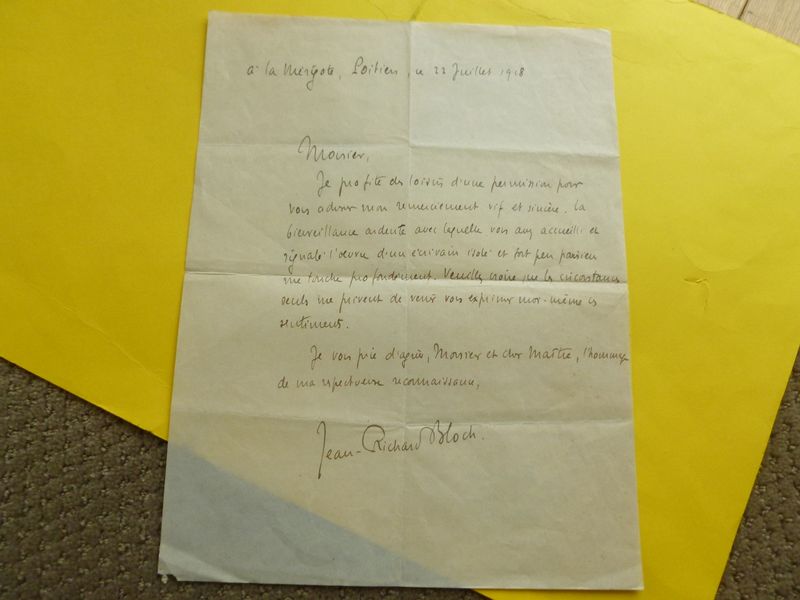 à la Mérigote, Poitiers, ce 22 Juillet 1918
Monsieur,
Je profite des loisirs d'une permission pour
vous adresser mon remerciement vif et sincère. La
bienveillance ardente avec laquelle vous avez accueilli et
signalé l'œuvre d'un écrivain isolé et fort peu parisien
me touche profondément. Veuillez croire que les circonstances
seules me privent de venir vous exprimer moi-même ces
sentiments.
Je vous prie d'agréer, Monsieur et cher Maître, l'hommage
de ma respectueuse reconnaissance,
Jean-Richard Bloch.